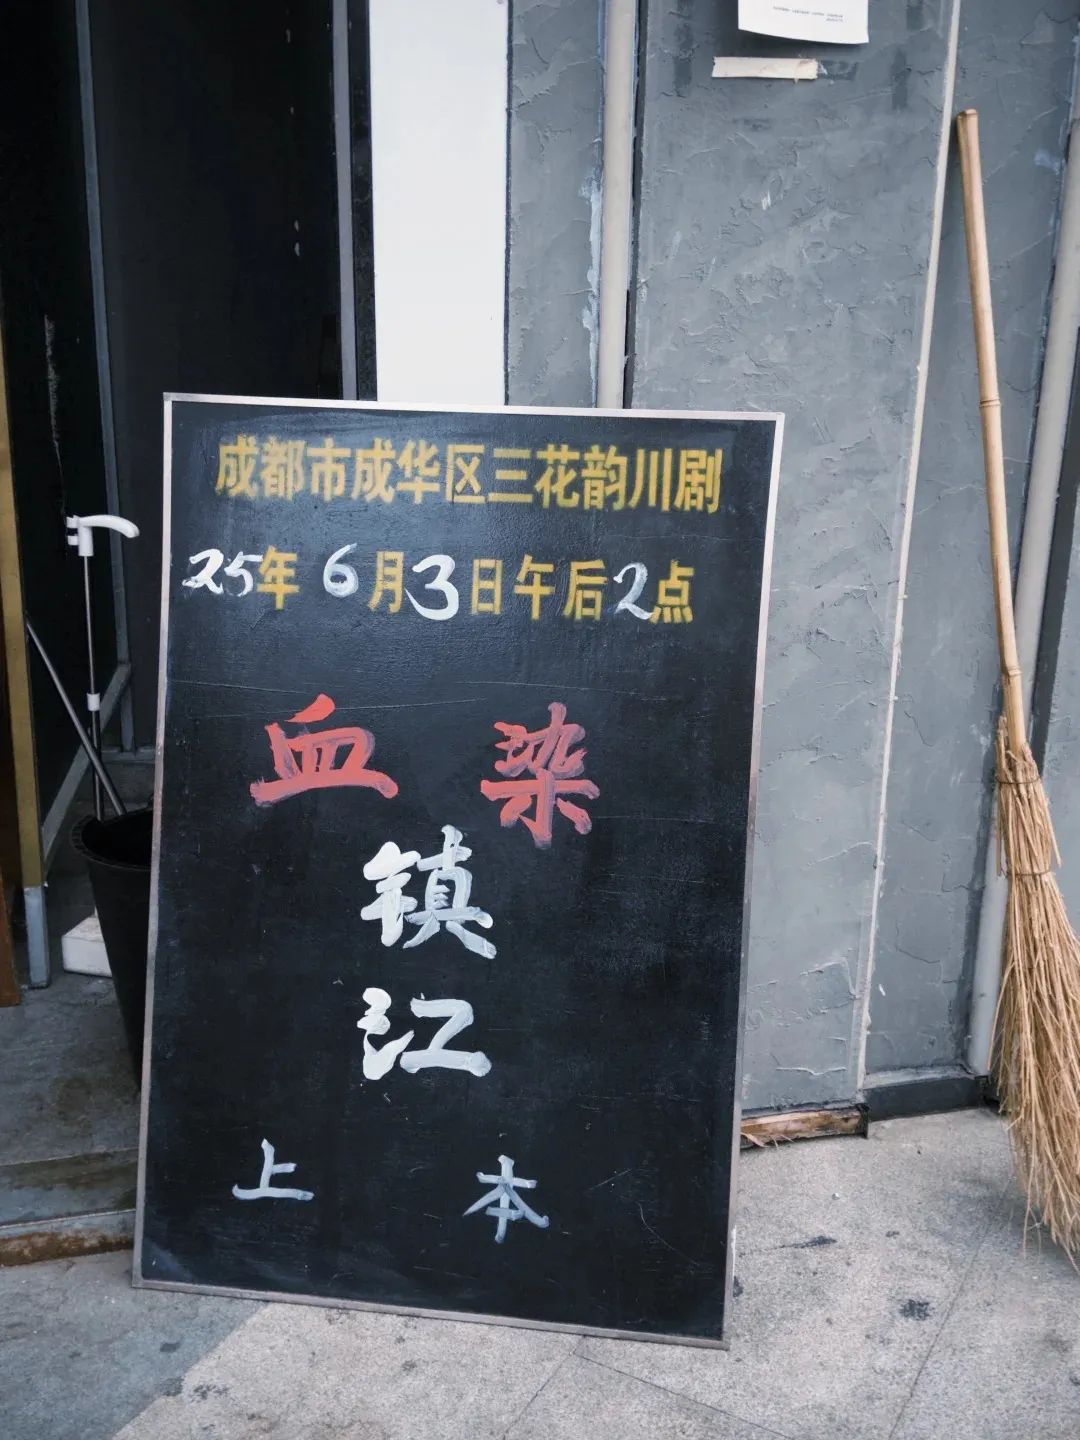 成都市成华区三花韵川剧
25年6月3日午后2点
血染
镇
江
上本